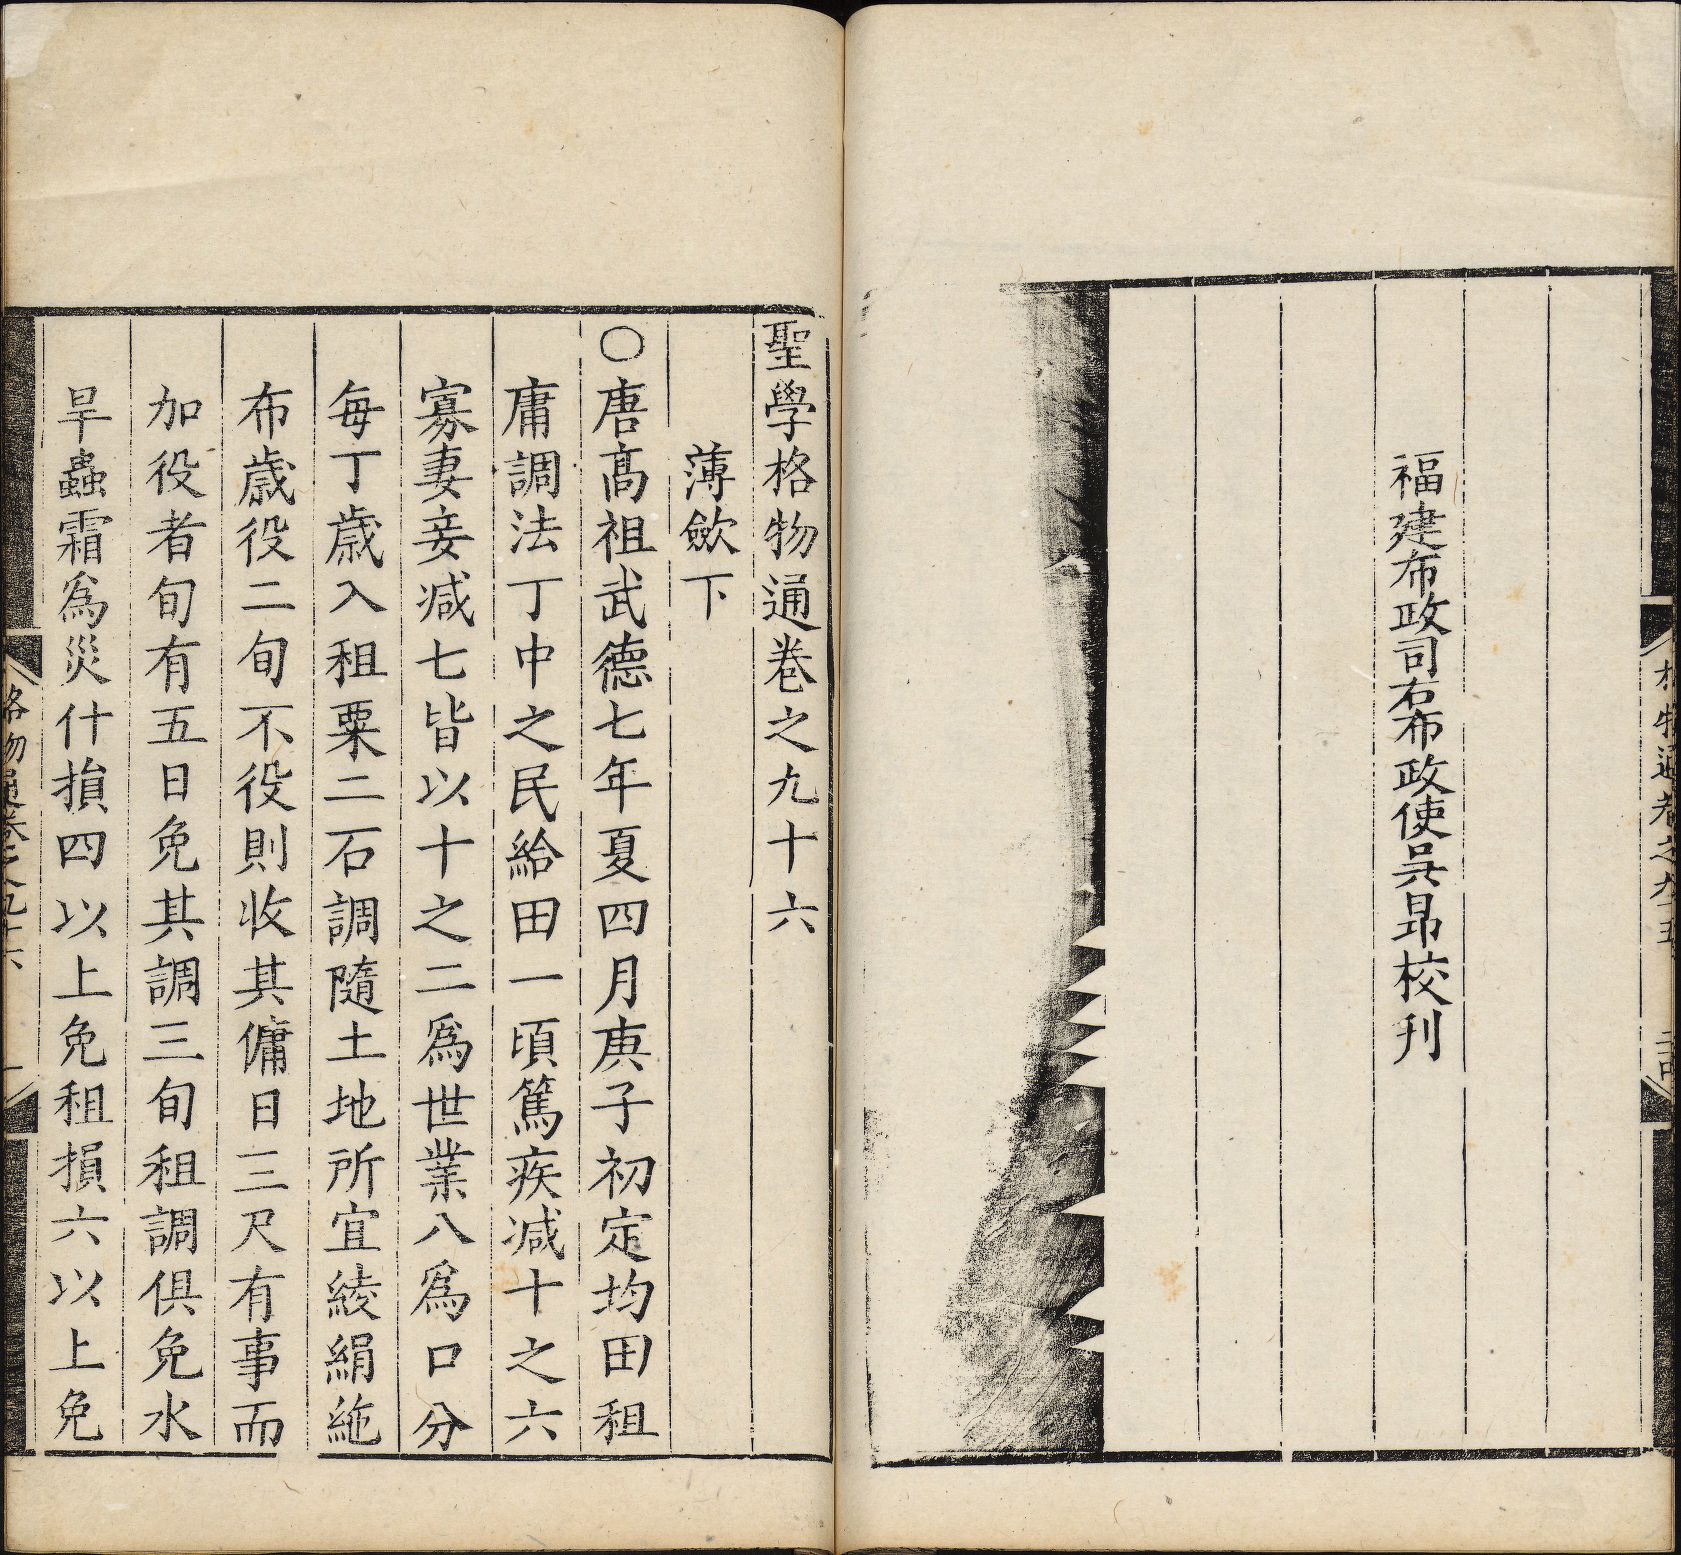 福建布政司右布政使吳昂校刋
聖學格物通卷之九十六
薄斂下
〇唐髙祖武德七年夏四月庚子初定均田租
庸調法丁中之民給田一頃篤疾减十之六
寡妻妾减七皆以十之二爲世業八爲口分
每丁歲入租粟二石調隨土地所宜綾絹絁
布歲役二旬不役則收其傭日三尺有事而
加役者旬有五日免其調三旬租調俱免水
旱蟲霜爲災什損四以上免租損六以上免
格物通卷之九十六 一